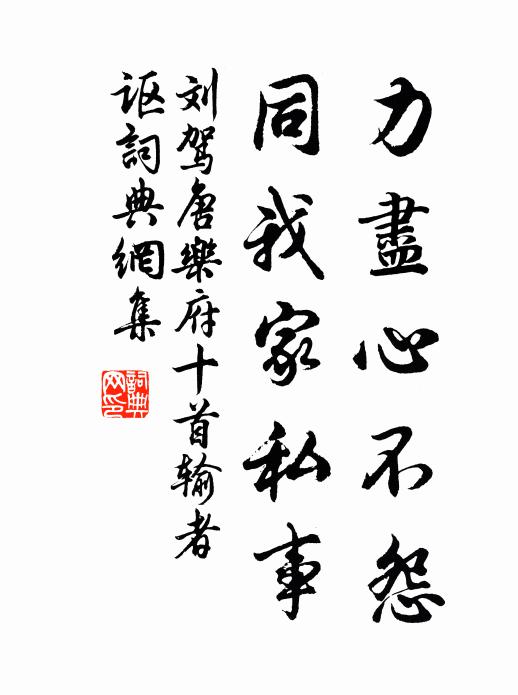 力盡心不怨
同我家私事
刘駕唐樂府十首输者
讴詞典網集
詞典
网印